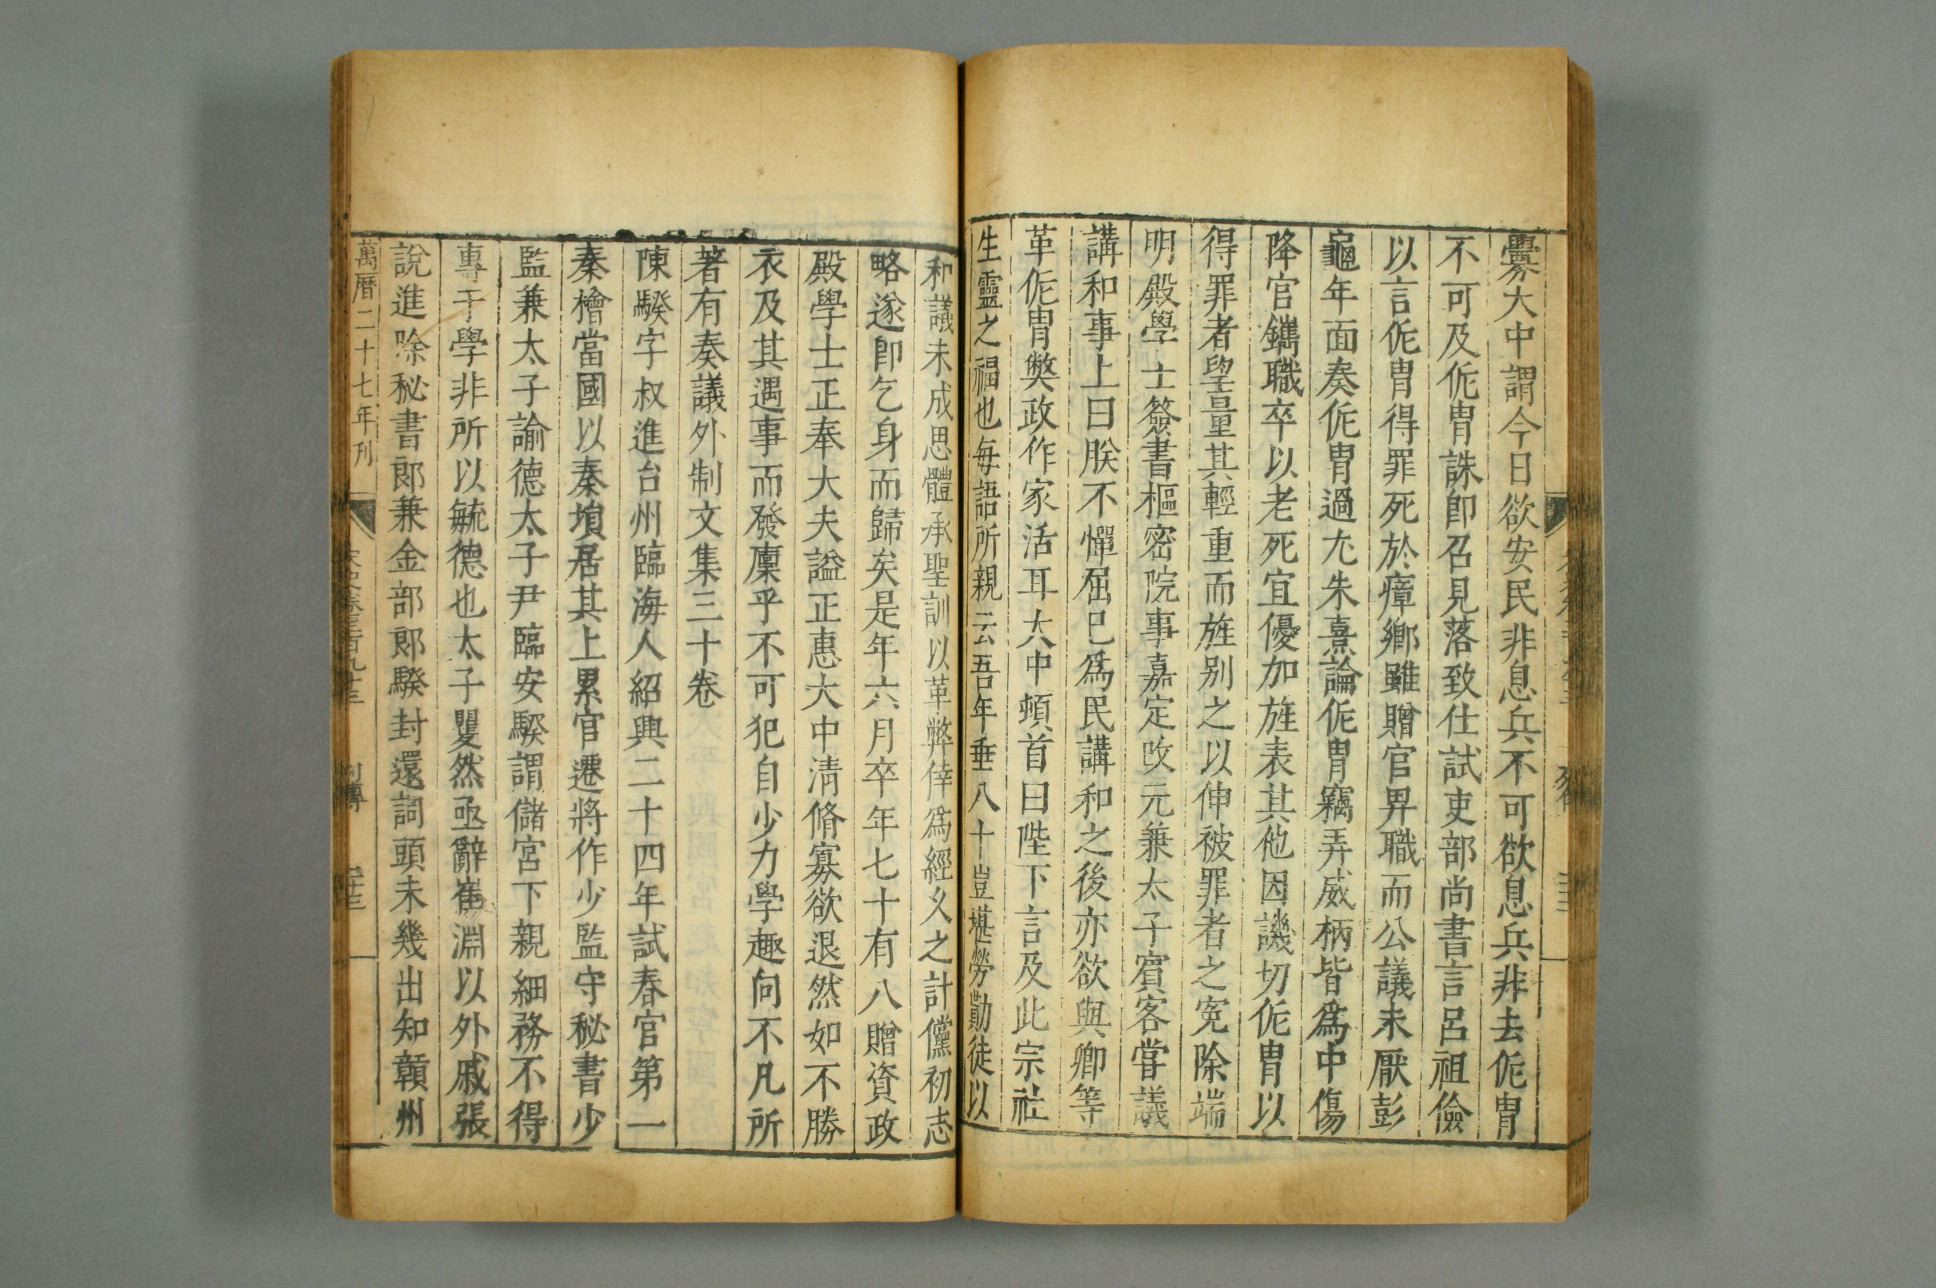 釁大中謂今日欲安民非息兵不可欲息兵非去侂冑
不可及侂冑誅卽召見落致仕試吏部尚書言呂祖儉
以言侂冑得罪死於瘴鄉雖贈官畀職而公議未厭彭
龜年面奏侂冑過尢朱熹論侂冑竊弄威柄皆爲中傷
降官鐫職卒以老死宜優加旌表其他因譏切侂冑以
得罪者望量其輕重而旌别之以伸被罪者之寃除端
明殿學士簽書樞密院事嘉定改元兼太子賓客嘗議
講和事上曰朕不憚屈已爲民講和之後亦欲與卿等
革侂冑獘政作家活耳大中頓首曰陛下言及此宗社
生靈之福也每語所親云吾年垂八十豈堪勞勩徒以
和議未成思體承聖訓以革弊倖爲經久之計儻初志
略遂卽乞身而歸矣是年六月卒年七十有八贈資政
殿學士正奉大夫謚正惠大中清脩寡欲退然如不勝
衣及其遇事而發凜乎不可犯自少力學趣向不凡所
著有奏議外制文集三十卷
陳騤字叔進台州臨海人紹興二十四年試春官第一
秦檜當國以秦塤居其上累官遷將作少監守秘書少
監兼太子諭德太子尹臨安騤謂儲宮下親細務不得
專于學非所以毓德也太子矍然亟辭崔淵以外戚張
說進除秘書郎兼金部郎騤封還詞頭未幾出知贛州
萬曆二十七年刋 宋史卷三百九十三 列傳 二十三